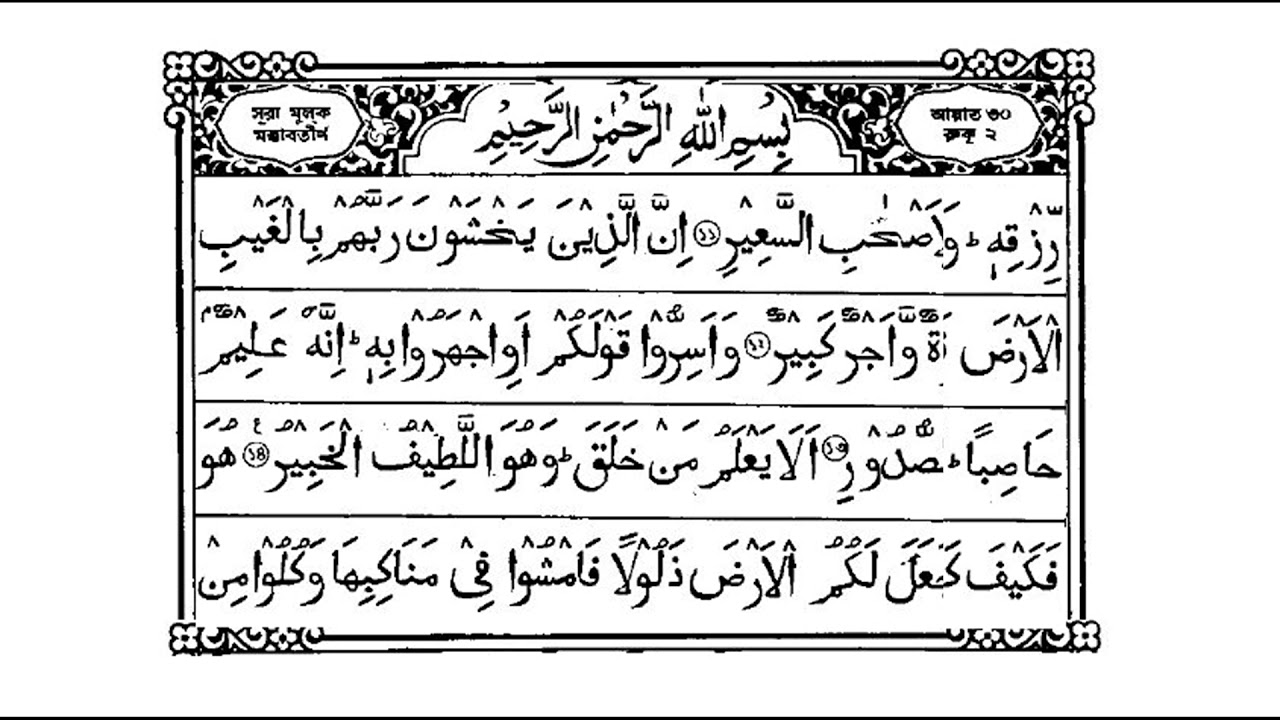 সূরা মূলক
মক্কাবতীর্ণ
بِسْمِ اللّٰهِ الرَّحْمٰنِ الرَّحِيْمِ
আয়াত ৩০
রুকু ২
رِّزْقِهٖ ؕ وَاَصْحٰبِ السَّعِيْرِ ১১ اِنَّ الَّذِيْنَ يَخْشَوْنَ رَبَّهُمْ بِالْغَيْبِ
الْاَرْضَ ةٌ وَّاَجْرٌ كَبِيْرٌ ১২ وَاَسِرُّوْا قَوْلَكُمْ اَوِ اجْهَرُوْا بِهٖ ؕ اِنَّهٗ عَلِيْمٌۢ
حَاصِبًا ؕ صُّدُوْرِ ১৩ اَلَا يَعْلَمُ مَنْ خَلَقَ ؕ وَهُوَ اللَّطِيْفُ الْخَبِيْرُ ১৪ هُوَ
فَكَيْفَ لَكُمُ الْاَرْضَ ذَلُوْلًا فَامْشُوْا فِيْ مَنَاكِبِهَا وَكُلُوْا مِنْ